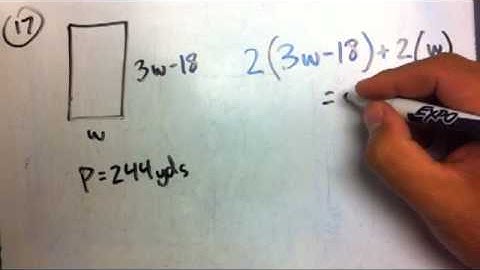 17
3w-18
w
P=244yds
2(3w-18)+2(w)
=
EXPO